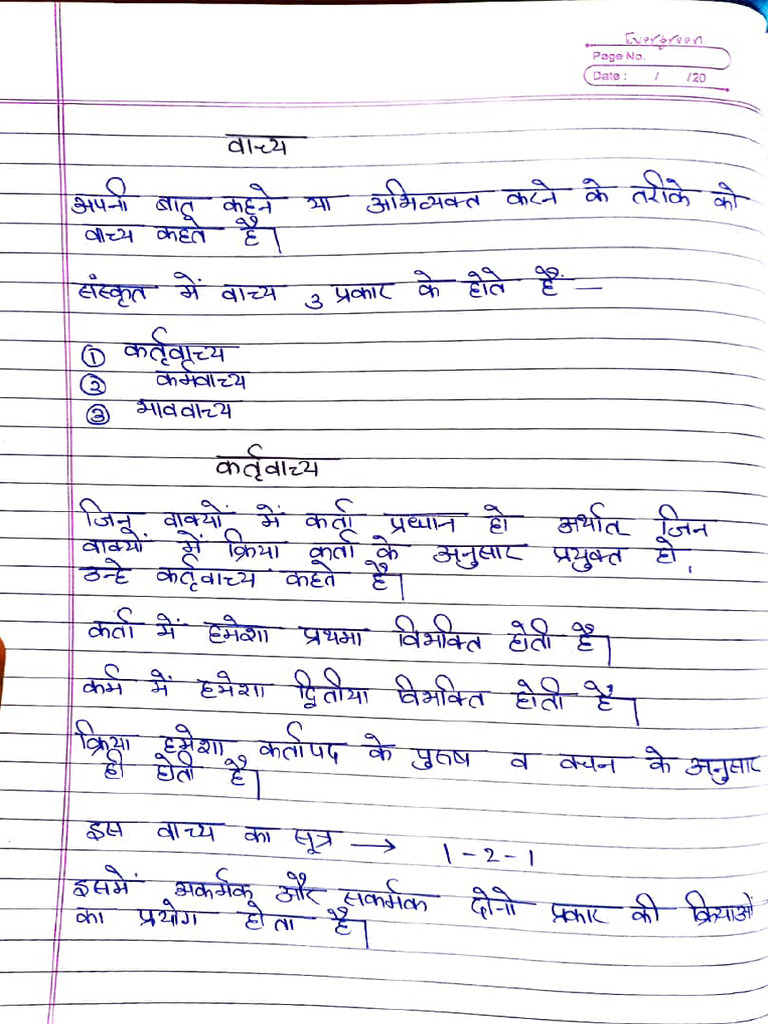 Evergreen
Page No.
Date : / /20
वाच्य
अपनी बात कहने या अभिव्यक्त करने के तरीके को
वाच्य कहते है।
संस्कृत में वाच्य 3 प्रकार के होते हैं —
① कर्तृवाच्य
② कर्मवाच्य
③ भाववाच्य
कर्तृवाच्य
जिन वाक्यों में कर्ता प्रधान हो अर्थात जिन
वाक्यों में क्रिया कर्ता के अनुसार प्रयुक्त हो,
उन्हे कर्तृवाच्य कहते है।
कर्ता में हमेशा प्रथमा विभक्ति होती है।
कर्म में हमेशा द्वितीया विभक्ति होती है।
क्रिया हमेशा कर्तापद के पुरुष व वचन के अनुसार
ही होती है।
इस वाच्य का सूत्र → 1-2-1
इसमें अकर्मक और सकर्मक दोनो प्रकार की क्रियाओं
का प्रयोग होता है।